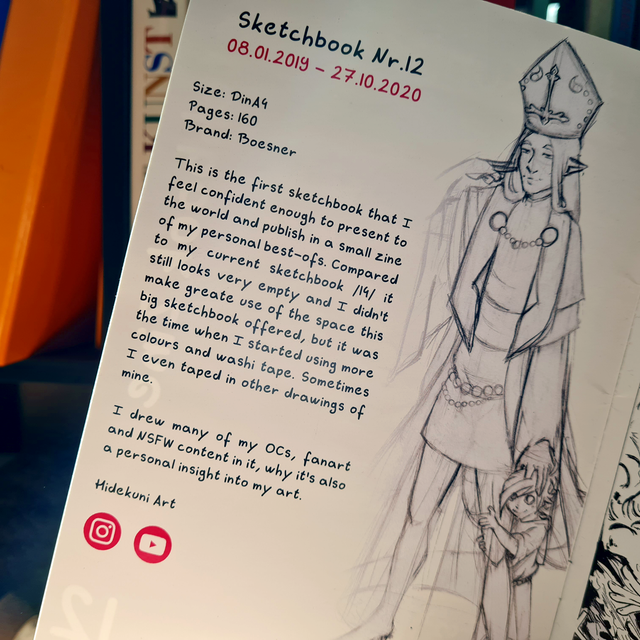 Sketchbook Nr.12
08.01.2019 - 27.10.2020
Size: DinA4
Pages: 160
Brand: Boesner
This is the first sketchbook that I
feel confident enough to present to
the world and publish in a small zine
of my personal best-ofs. Compared
to my current sketchbook /14/ it
still looks very empty and I didn't
make greate use of the space this
big sketchbook offered, but it was
the time when I started using more
colours and washi tape. Sometimes
I even taped in other drawings of
mine.
I drew many of my OCs, fanart
and NSFW content in it, why it's also
a personal insight into my art.
Hidekuni Art
KUNST